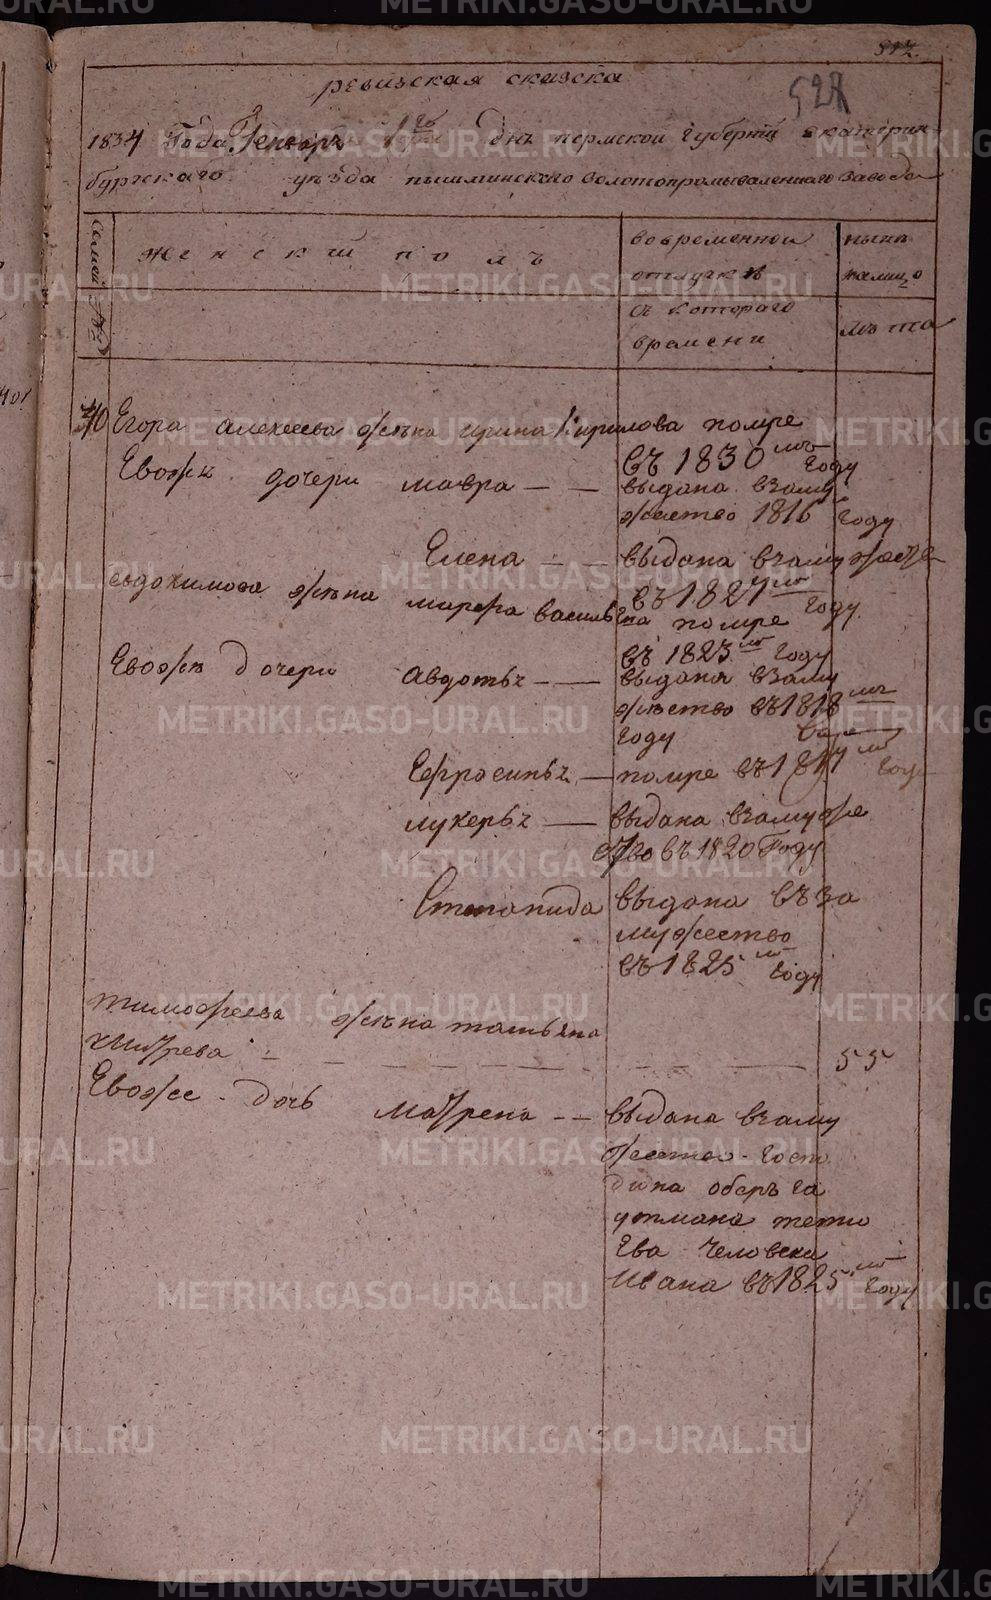 METRIKI.GASO-URAL.RU
517.
527
ревизская сказска
1834 Года Генваря дня пермской Губернии екатерин
бургскаго уезда пышминскаго Золотопромываленнаго Завода
Семей №
женский полъ
вовременной отлучкѣ
нынѣ налицо
съ котораго времени
лѣта
40 Егора алексеева жѣна ирина Кирилова помре
въ 1830мъ Году
Евожѣ дочери мавра — — выдана взаму
жество 1816 Году
Елена — — выдана взамужестве
въ 1824мъ Году
евдокимова жѣна марфа василъева помре
въ 1823мъ Году
Евожѣ дочери авдотья — — выдана взаму
жѣство въ 1818мъ
Году
Ефросинья — помре въ 1817мъ Году
лукерья — выдана взамуже
ство въ 1820 Году
Степанида выдана въ за
мужество
въ 1825мъ Году
тимофеева жѣна татьяна
— — — — — — — — — 55
Евоже дочь матрена — — выдана взаму
жество госпо
дина оберъ га
уптмана
ева человека
Ивана въ 1825мъ Году